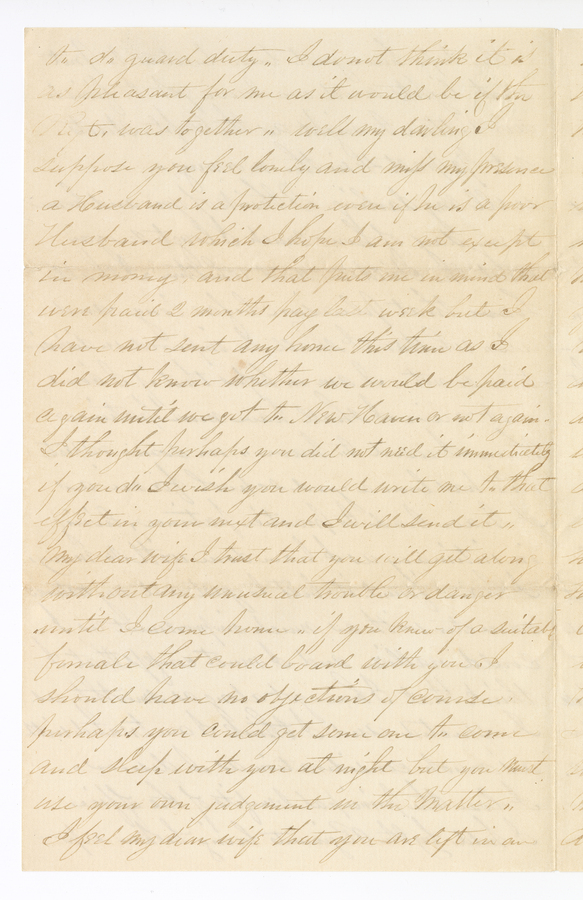 to do guard duty,, I do not think it is
as pleasant for me as it would be if the
Regt. was together,, well my darling I
suppose you feel lonely and miss my presence
a Husband is a protection even if he is a poor
Husband which I hope I am not except
in money. and that puts me in mind that
were paid 2 months pay last week but I
have not sent any home this time as I
did not know whether we would be paid
again until we got to New Haven or not again.
I thought perhaps you did not need it immediately
if you do I wish you would write me to that
effect in your next and I will send it,,
My dear wife I trust that you will get along
without any unusual trouble or danger
until I come home,, if you knew of a suitable
female that could board with you I
should have no objections of course.
perhaps you could get some one to come
and sleep with you at night but you must
use your own judgement in the Matter,,
I feel my dear wife that you are left in an